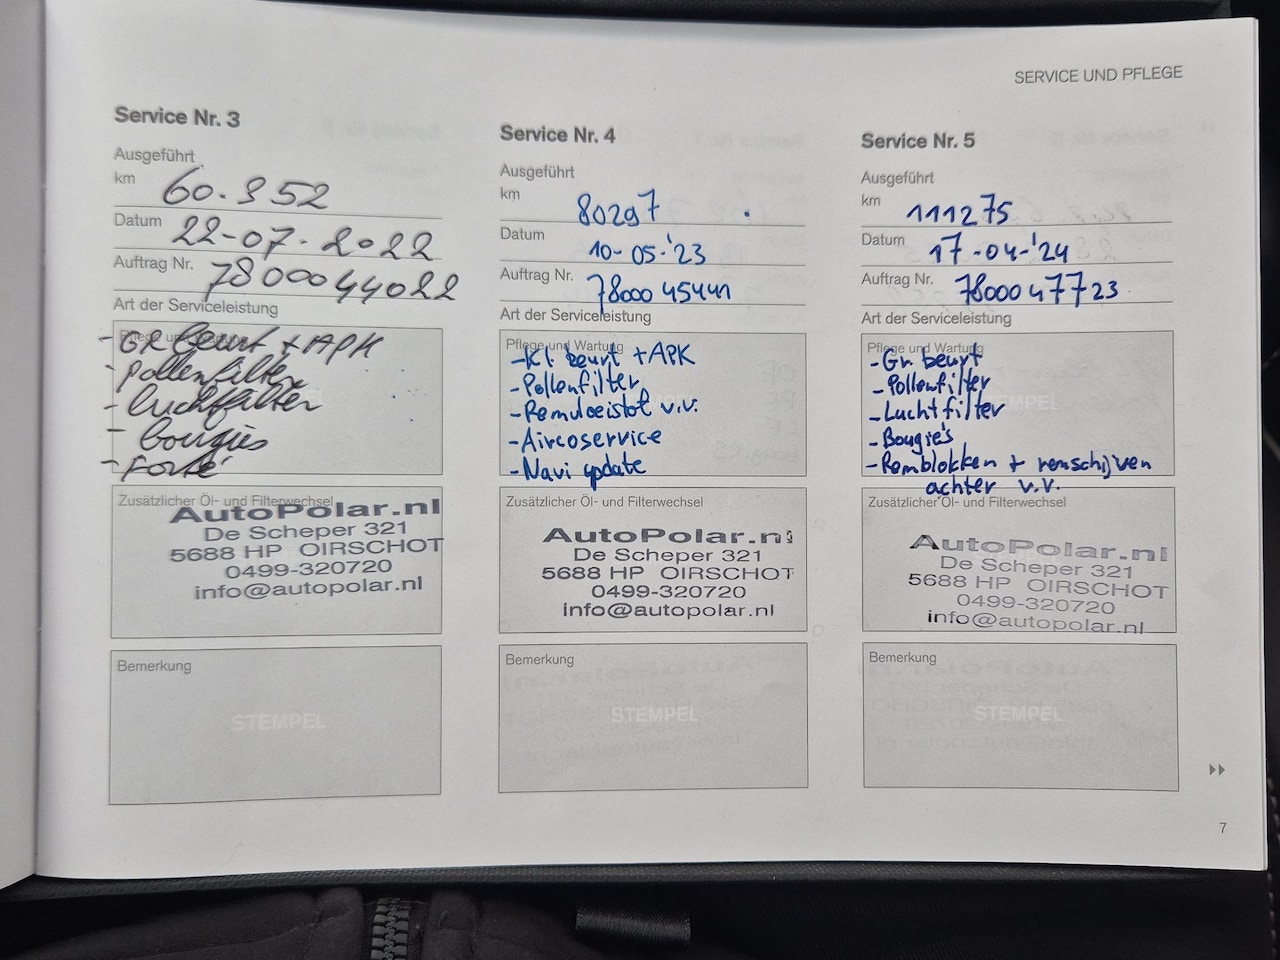 SERVICE UND PFLEGE
Service Nr. 3
Ausgeführt
km 60.952
Datum 22-07-2022
Auftrag Nr. 7800044022
Art der Serviceleistung
Pflege und
- GR beurt + APK
- Pollenfilter
- luchtfilter
- Bougies
- Forté
Zusätzlicher Öl- und Filterwechsel
AutoPolar.nl
De Scheper 321
5688 HP OIRSCHOT
0499-320720
info@autopolar.nl
Bemerkung
STEMPEL
Service Nr. 4
Ausgeführt
km 80297
Datum 10-05-'23
Auftrag Nr. 7800045441
Art der Serviceleistung
Pflege und Wartung
- Kl. beurt + APK
- Pollenfilter
- Remvloeistof v.v.
- Aircoservice
- Navi update
Zusätzlicher Öl- und Filterwechsel
AutoPolar.nl
De Scheper 321
5688 HP OIRSCHOT
0499-320720
info@autopolar.nl
Bemerkung
STEMPEL
Service Nr. 5
Ausgeführt
km 111275
Datum 17-04-'24
Auftrag Nr. 7800047723
Art der Serviceleistung
Pflege und Wartung
- Gr. beurt
- Pollenfilter
- Luchtfilter
- Bougie's
- Remblokken + remschijven
achter v.v.
Zusätzlicher Öl- und Filterwechsel
AutoPolar.nl
De Scheper 321
5688 HP OIRSCHOT
0499-320720
info@autopolar.nl
Bemerkung
STEMPEL
7